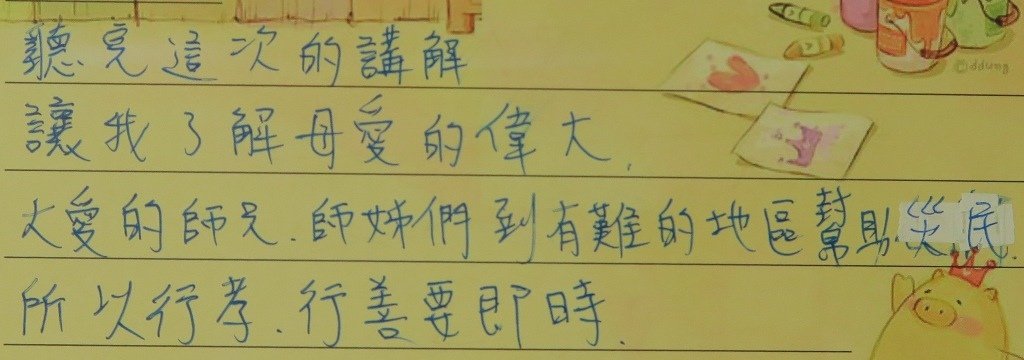 聽完這次的講解
讓我了解母愛的偉大.
大愛的師兄.師姊們到有難的地區幫助災民.
所以行孝.行善要即時.
©ddung